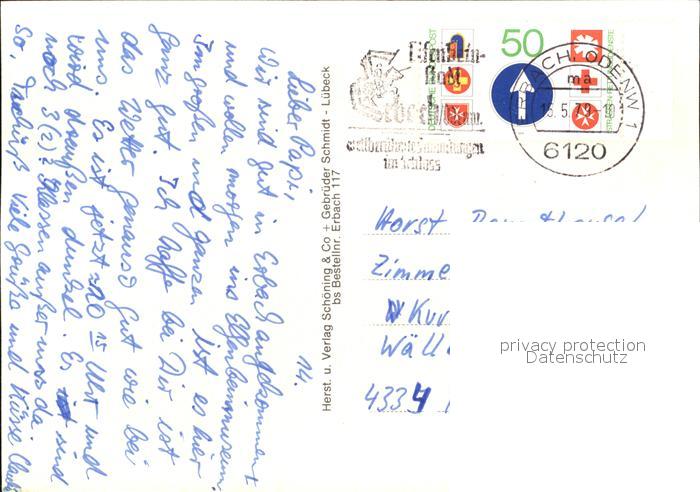 14.
Lieber Papi,
Wir sind gut in Erbach angekommen
und wollen morgen ins Elfenbeinmuseum.
Im großen und ganzen ist es hier
ganz gut. Ich hoffe bei Dir ist
das Wetter genauso gut wie bei
uns. Es ist jetzt ≈ 20 15 Uhr und
wird draußen dunkel. Es sind
noch 3(2)? Klassen außer uns da.
So, Tschüß Viele Grüße und Küsse
Herst. u. Verlag Schöning & Co + Gebrüder Schmidt - Lübeck
bs Bestellnr. Erbach 117
Elfenbein-
Stadt
Erbach/Odenw.
weltberühmte Sammlungen
im Schloss
DEUTSCHE BUNDESPOST
50
ERBACH, ODENW 1
ma
15.5.79
6120
Horst
Zimme
Kur
Wäll
4334
privacy protection
Datenschutz